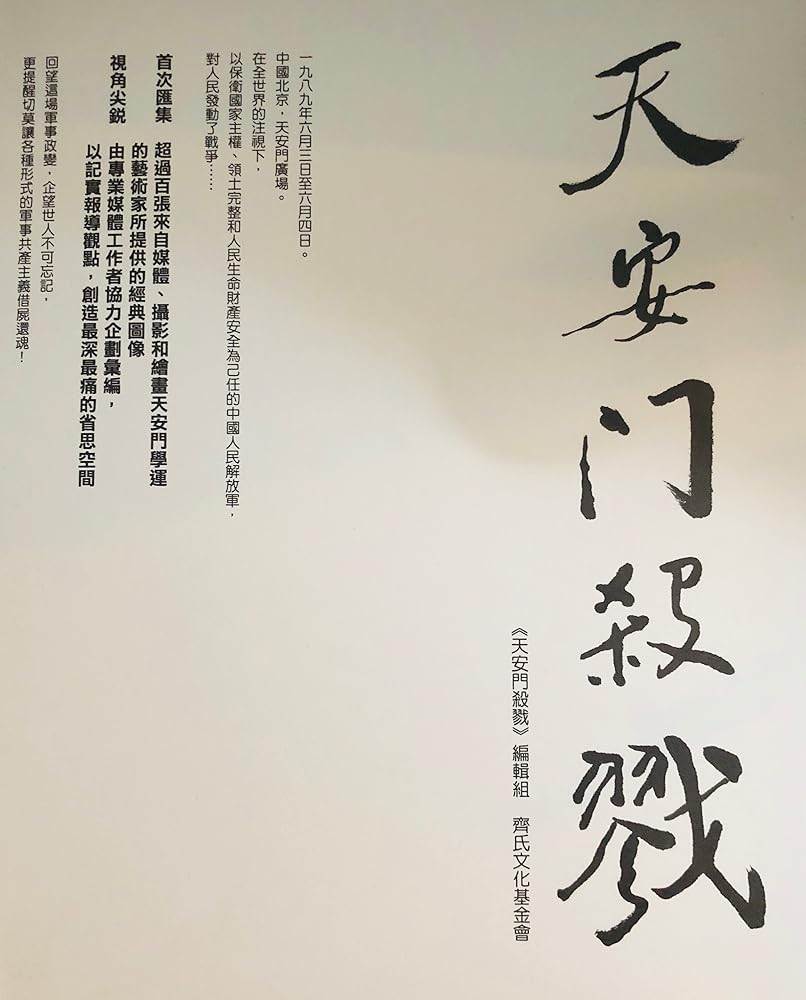 天安门殺戮
《天安門殺戮》編輯組 齊氏文化基金會
一九八九年六月三日至六月四日。
中國北京，天安門廣場。
在全世界的注視下，
以保衛國家主權、領土完整和人民生命財產安全為己任的中國人民解放軍，
對人民發動了戰爭……
首次匯集 超過百張來自媒體、攝影和繪畫天安門學運
的藝術家所提供的經典圖像
視角尖銳 由專業媒體工作者協力企劃彙編，
以記實報導觀點，創造最深最痛的省思空間
回望這場軍事政變，企望世人不可忘記，
更提醒切莫讓各種形式的軍事共產主義借屍還魂！